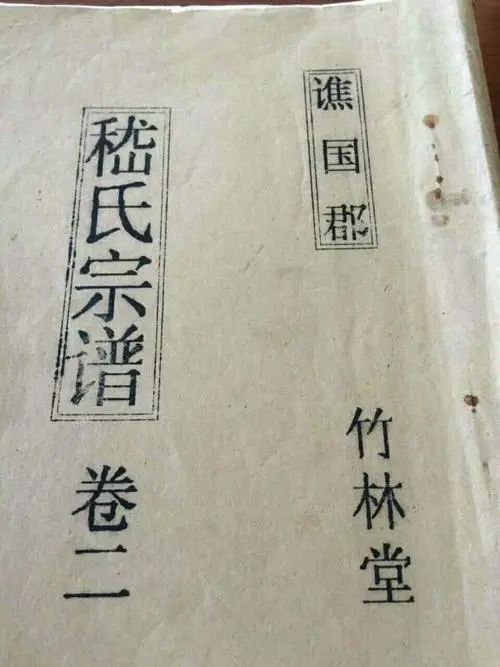 谯国郡
竹林堂
嵇氏宗谱
卷二